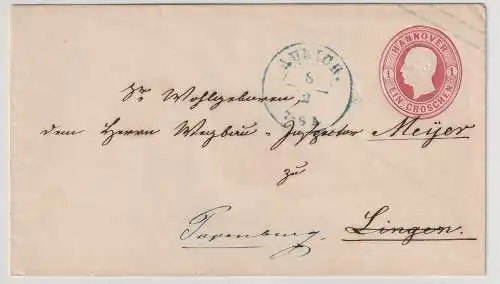 HANNOVER
1 1
EIN GROSCHEN
AURICH.
8
2
Sr. Wohlgeboren,
dem Herrn Wegbau-Inspector Meyer
zu
Lingen.